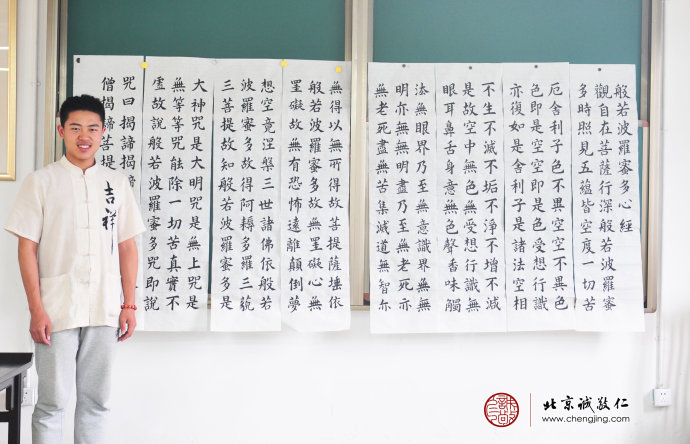 般若波羅蜜多心經
觀自在菩薩行深般若波羅蜜
多時照見五蘊皆空度一切苦
厄舍利子色不異空空不異色
色即是空空即是色受想行識
亦復如是舍利子是諸法空相
不生不滅不垢不淨不增不減
是故空中無色無受想行識無
眼耳鼻舌身意無色聲香味觸
法無眼界乃至無意識界無無
明亦無無明盡乃至無老死亦
無老死盡無苦集滅道無智亦
無得以無所得故菩提薩埵依
般若波羅蜜多故無罣礙心無
罣礙故無有恐怖遠離顛倒夢
想究竟涅槃三世諸佛依般若
波羅蜜多故得阿耨多羅三藐
三菩提故知般若波羅蜜多是
大神咒是大明咒是無上咒是
無等等咒能除一切苦真實不
虛故說般若波羅蜜多咒即說
咒曰揭諦揭諦
僧揭諦菩提
吉祥
北京诚敬仁
www.chengjing.com